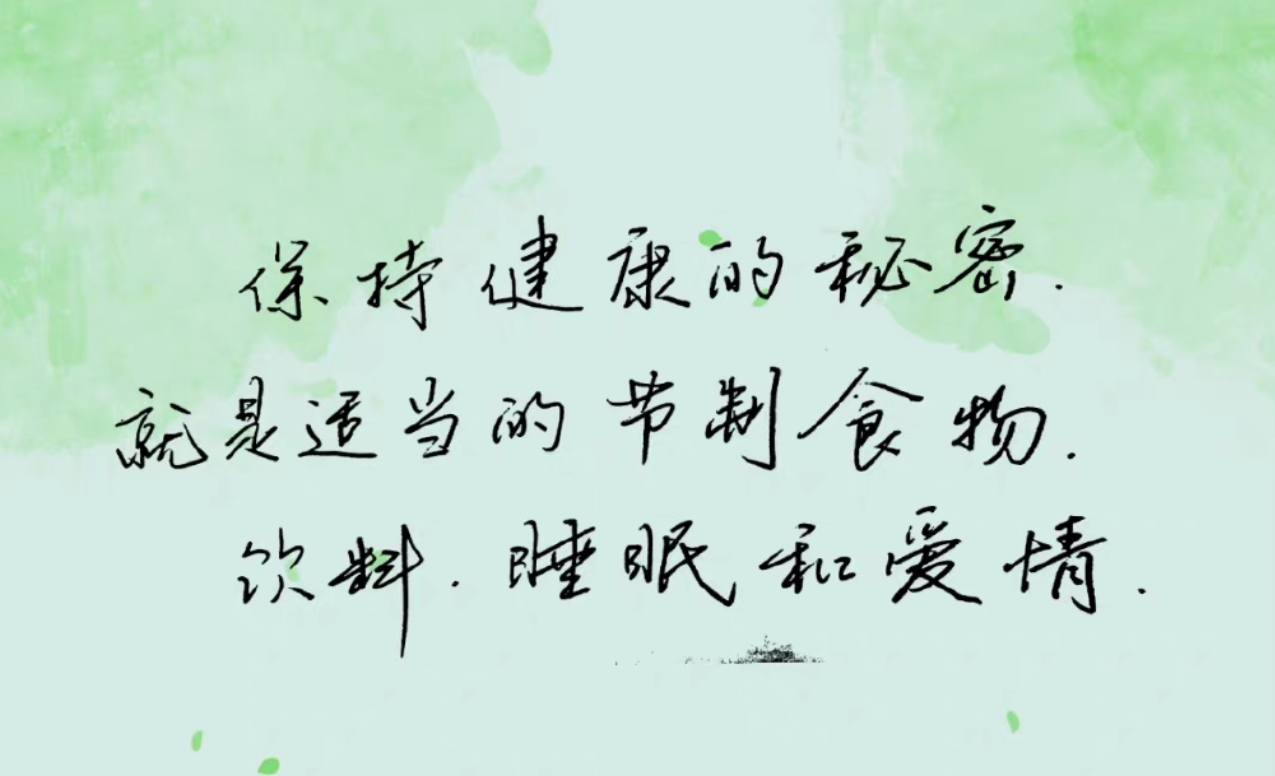 保持健康的秘密.
就是适当的节制食物.
饮料.睡眠和爱情.